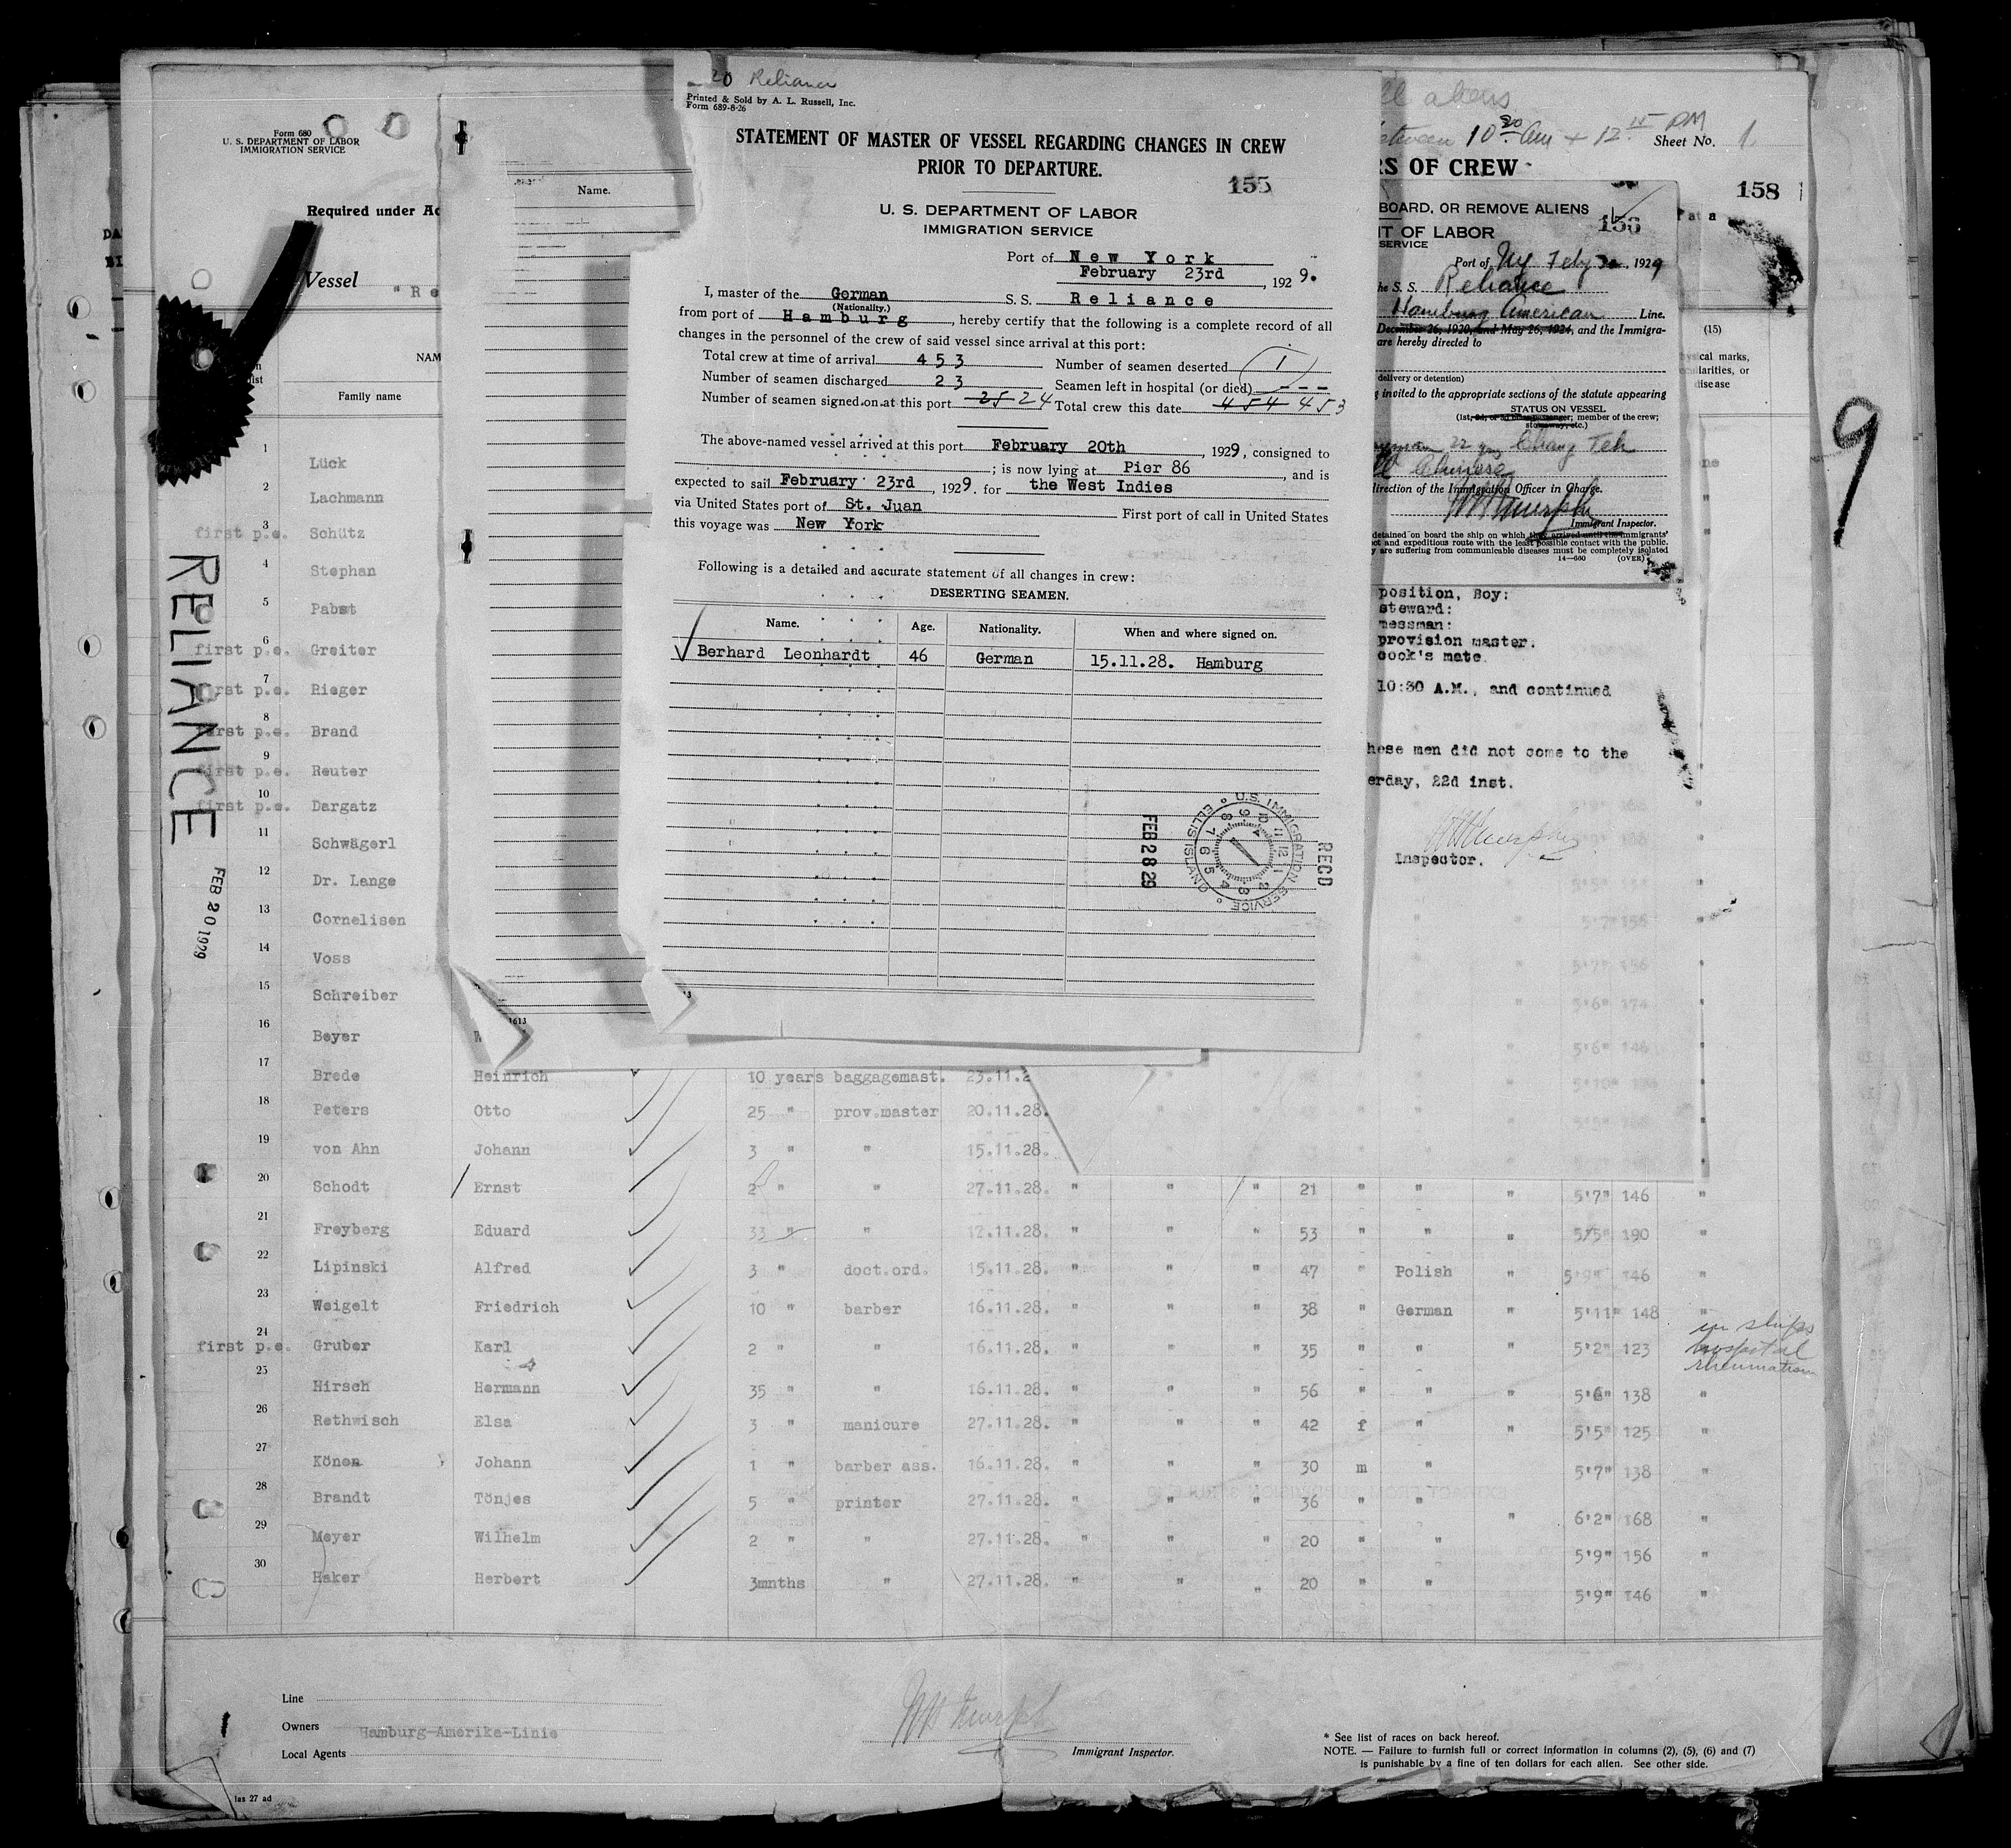 20 Reliance
Printed & Sold by A. L. Russell, Inc.
Form 689-8-26
STATEMENT OF MASTER OF VESSEL REGARDING CHANGES IN CREW
PRIOR TO DEPARTURE.
155
U. S. DEPARTMENT OF LABOR
IMMIGRATION SERVICE
Port of New York
February 23rd, 1929.
I, master of the German S. S. Reliance
(Nationality.)
from port of Hamburg, hereby certify that the following is a complete record of all
changes in the personnel of the crew of said vessel since arrival at this port:
Total crew at time of arrival 453 Number of seamen deserted 1
Number of seamen discharged 23 Seamen left in hospital (or died) ---
Number of seamen signed on at this port 25 24 Total crew this date 454 453
The above-named vessel arrived at this port February 20th, 1929, consigned to
; is now lying at Pier 86, and is
expected to sail February 23rd, 1929. for the West Indies
via United States port of St. Juan First port of call in United States
this voyage was New York
Following is a detailed and accurate statement of all changes in crew:
DESERTING SEAMEN.
Name. Age. Nationality. When and where signed on.
Berhard Leonhardt 46 German 15.11.28. Hamburg
U.S. IMMIGRATION SERVICE
ELLIS ISLAND
FEB 28 29
RECD
Name.
1613
Form 680
U. S. DEPARTMENT OF LABOR
IMMIGRATION SERVICE
Required under Ac
Vessel "Re
NAM
Family name
RELIANCE
FEB 20 1929
1 Lück
2 Lachmann
3 first p.e. Schütz
4 Stephan
5 Pabst
6 first p.e. Greiter
7 first p.e. Rieger
8 first p.e. Brand
9 first p.e. Reuter
10 first p.e. Dargatz
11 Schwägerl
12 Dr. Lange
13 Cornelisen
14 Voss
15 Schreiber
16 Beyer W
17 Brede Heinrich 10 years baggagemast. 23.11.2
18 Peters Otto 25 " prov.master 20.11.28.
19 von Ahn Johann 3 " " 15.11.28.
20 Schodt Ernst 2 " " 27.11.28. " " " 21 " " " 5'7" 146 "
21 Freyberg Eduard 33 " " 12.11.28. " " " 53 " " " 5'5" 190 "
22 Lipinski Alfred 3 " doct.ord. 15.11.28. " " " 47 " Polish " 5'9" 146 "
23 Weigelt Friedrich 10 " barber 16.11.28. " " " 38 " German " 5'11" 148 "
24 first p.e. Gruber Karl 2 " " 16.11.28. " " " 35 " " " 5'2" 123 in ships hospital rheumatism
25 Hirsch Hermann 35 " " 16.11.28. " " " 56 " " " 5'6" 138 "
26 Rethwisch Elsa 3 " manicure 27.11.28. " " " 42 f " " 5'5" 125 "
27 Könen Johann 1 " barber ass. 16.11.28. " " " 30 m " 5'7" 138 "
28 Brandt Tönjes 5 " printer 27.11.28. " " " 36 " " " 6'2" 168 "
29 Meyer Wilhelm 2 " " 27.11.28. " " " 20 " " 5'9" 156 "
30 Haker Herbert 3mnths " 27.11.28. " " " 20 " " 5'9" 146 "
Line
Owners Hamburg-Amerika-Linie
Local Agents
Immigrant Inspector.
* See list of races on back hereof.
NOTE. — Failure to furnish full or correct information in columns (2), (5), (6) and (7)
is punishable by a fine of ten dollars for each alien. See other side.
las 27 ad
aliens
between 10 30 am + 12 15 PM
Sheet No. 1
RS OF CREW
158
at a
(15)
BOARD, OR REMOVE ALIENS
156
T OF LABOR
SERVICE
Port of NY Feby 20, 1929
he S. S. Reliance
Hamburg American Line.
December 26, 1920, and May 26, 1924, and the Immigra-
are hereby directed to
delivery or detention)
g invited to the appropriate sections of the statute appearing
STATUS ON VESSEL
(1st, 2d, or 3d class passenger; member of the crew;
stowaway, etc.)
22 yrs Chang Teh
Chinese
direction of the Immigration Officer in Charge.
Immigrant Inspector.
detained on board the ship on which they arrived until the immigrants'
ct and expeditious route with the least possible contact with the public.
y are suffering from communicable diseases must be completely isolated
14—660 (OVER)
position, Boy:
steward:
messman:
provision master.
cook's mate.
10:30 A.M., and continued
hese men did not come to the
erday, 22d inst.
Inspector.
cal marks,
larities, or
disease
9